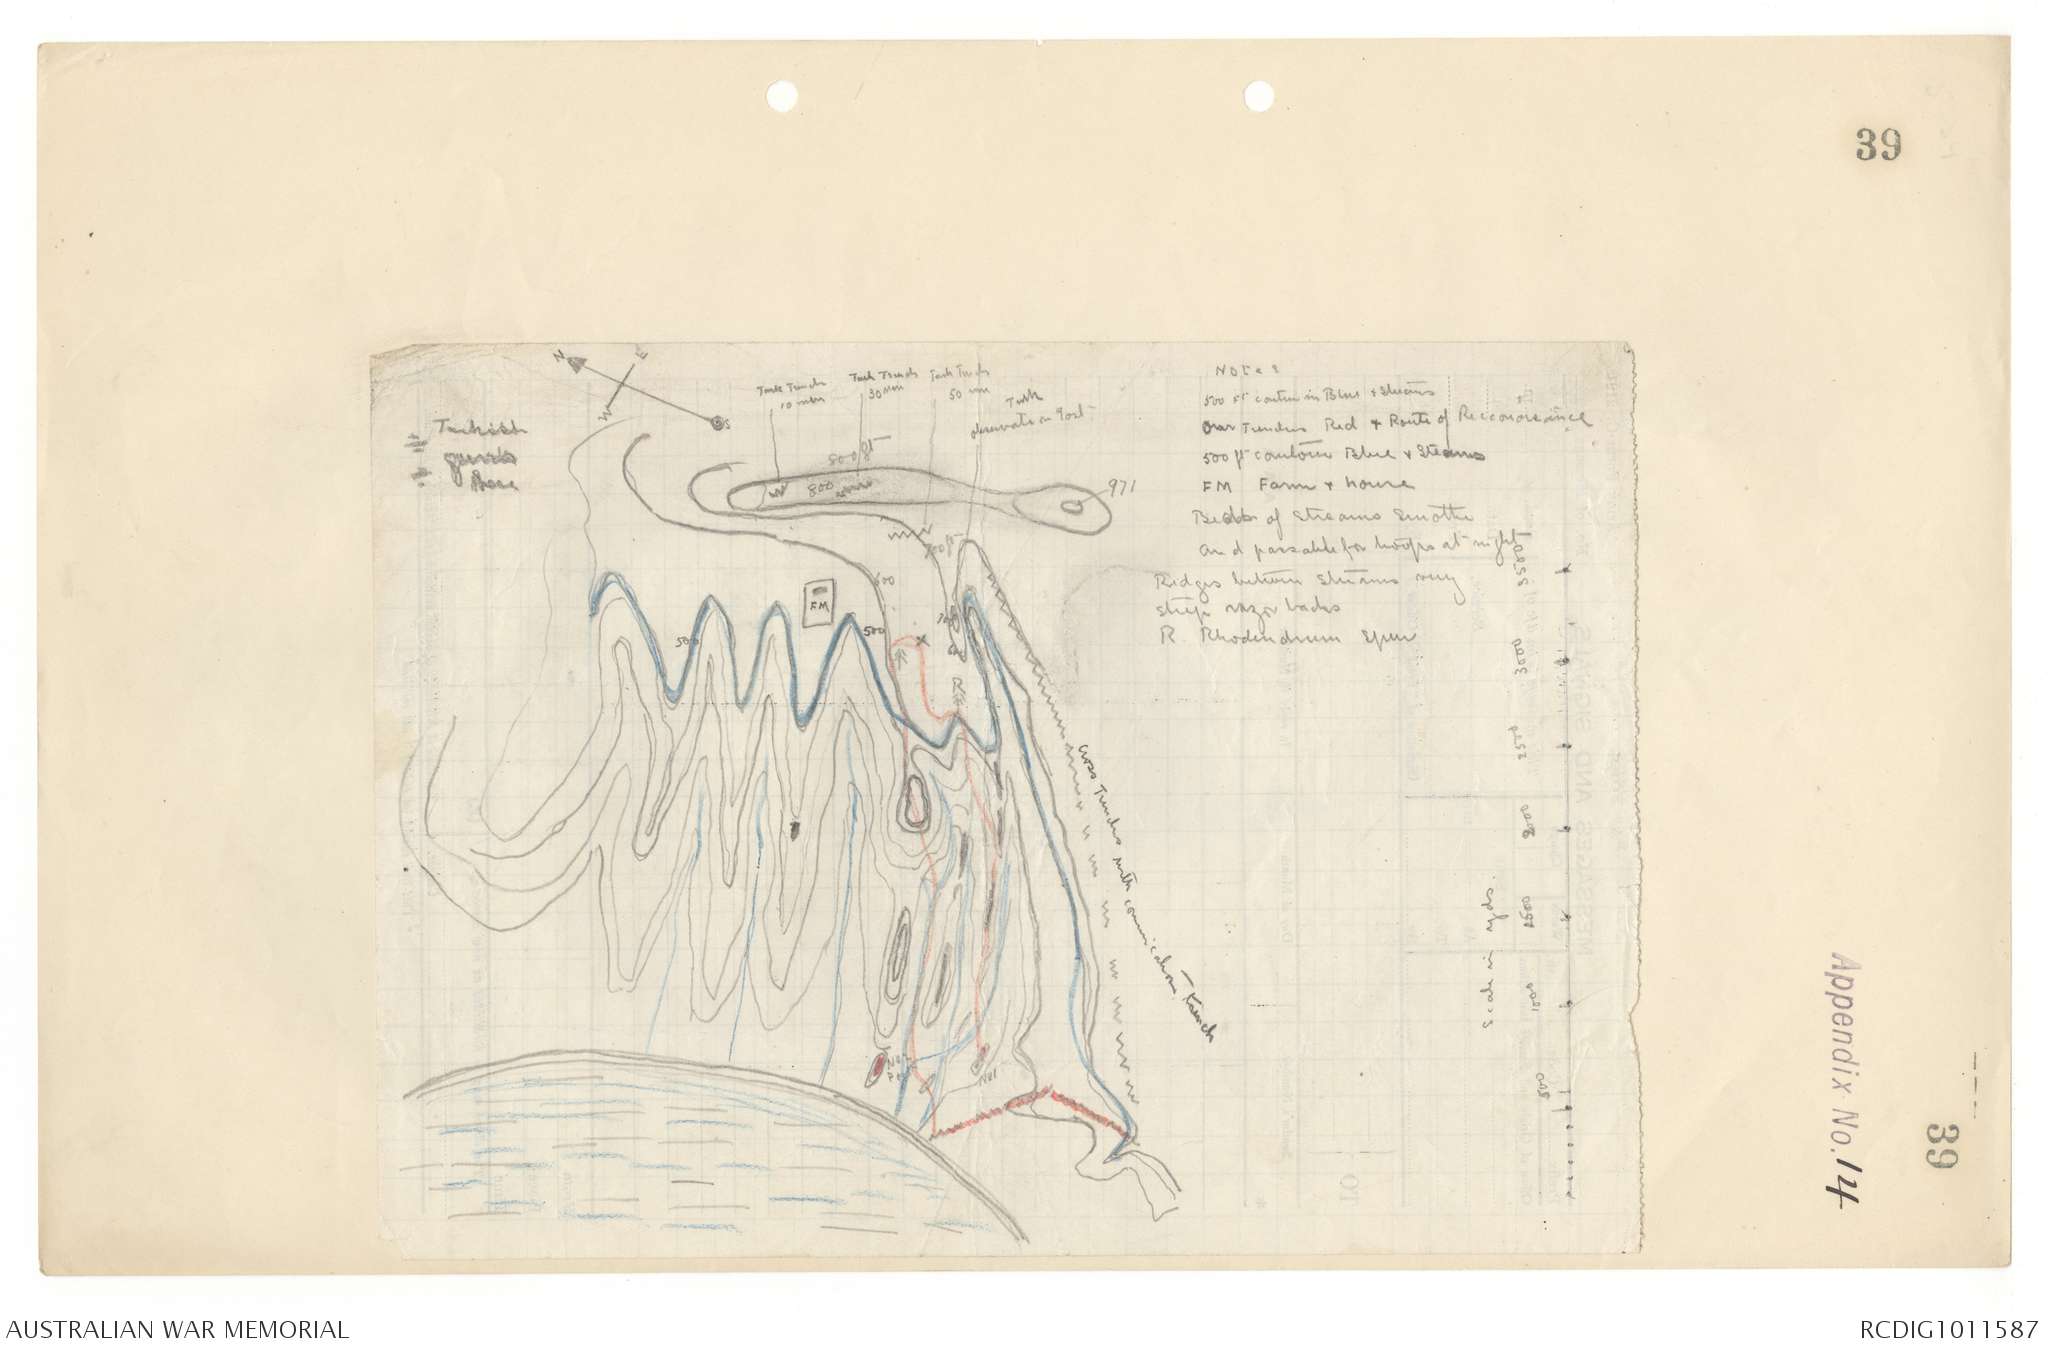 39
N
E
W
S
Turkish
guns
here
Turk Trench
10 men
Turk Trench
30 men
Turk Trench
50 men
Turk
observation Post
800 ft
800
971
700 ft
600
FM
500
500
X
R
Notes
500 ft contour in Blue & Streams
Our Trenches Red & Route of Reconoisince
500 ft contour Blue & Streams
FM Farm & house
Beds of Streams Smooth
and passable for troops at night
Ridges between Streams very
steep razor backs
R. Rhodendrum Spur
Cross Trenches with communication Trench
No 2
No 1
Scale in yds.
500
1000
1500
2000
2500
3000
3500
MESSAGES AND SIGNALS
TO
Appendix No. 14
39
AUSTRALIAN WAR MEMORIAL
RCDIG1011587